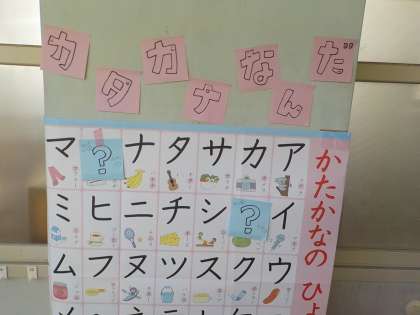 カタカナなんだ
かたかなの ひょ
アイウ
カ?ク
サシス
タチツ
ナニヌ
?ヒフ
マミム